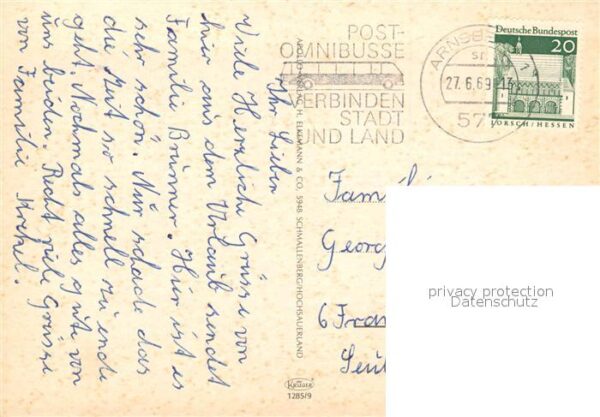 Ihr Lieben
Viele Herzliche Grüsse von
hier aus dem Urlaub sendet
Familie Brünner. Hier ist es
sehr schön. Nur schade das
die Zeit so schnell zu ende
geht. Nochmals alles gute von
uns beiden. Recht viele Grüsse
von Familie Krekel.
H. ELKEMANN & CO., 5948 SCHMALLENBERG/HOCHSAUERLAND
Krüger
1285/9
POST-
OMNIBUSSE
VERBINDEN
STADT
UND LAND
27.6.69-13
57
Deutsche Bundespost
20
LORSCH/HESSEN
Famili
Georg
6 Fra
privacy protection
Datenschutz